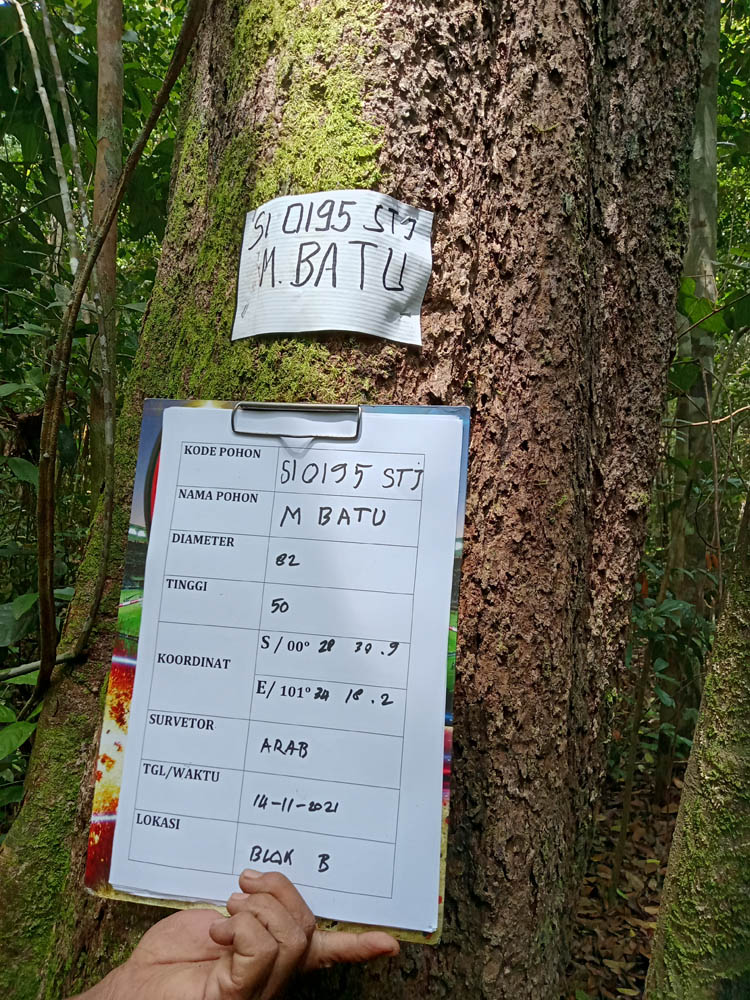 SI 0195 STJ
M. BATU
KODE POHON SI 0195 STJ
NAMA POHON M BATU
DIAMETER 82
TINGGI 50
KOORDINAT S / 00° 28 39.9
E/ 101° 34 18.2
SURVETOR ARAB
TGL/WAKTU 14-11-2021
LOKASI BLOK B